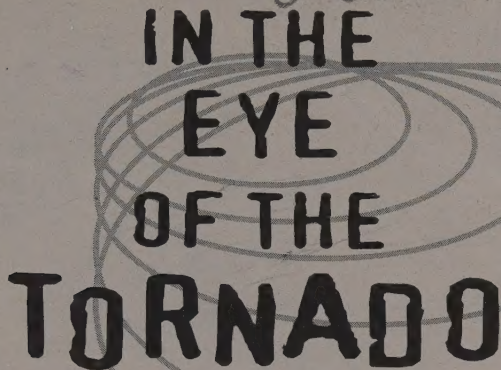 IN THE
EYE
OF THE
TORNADO